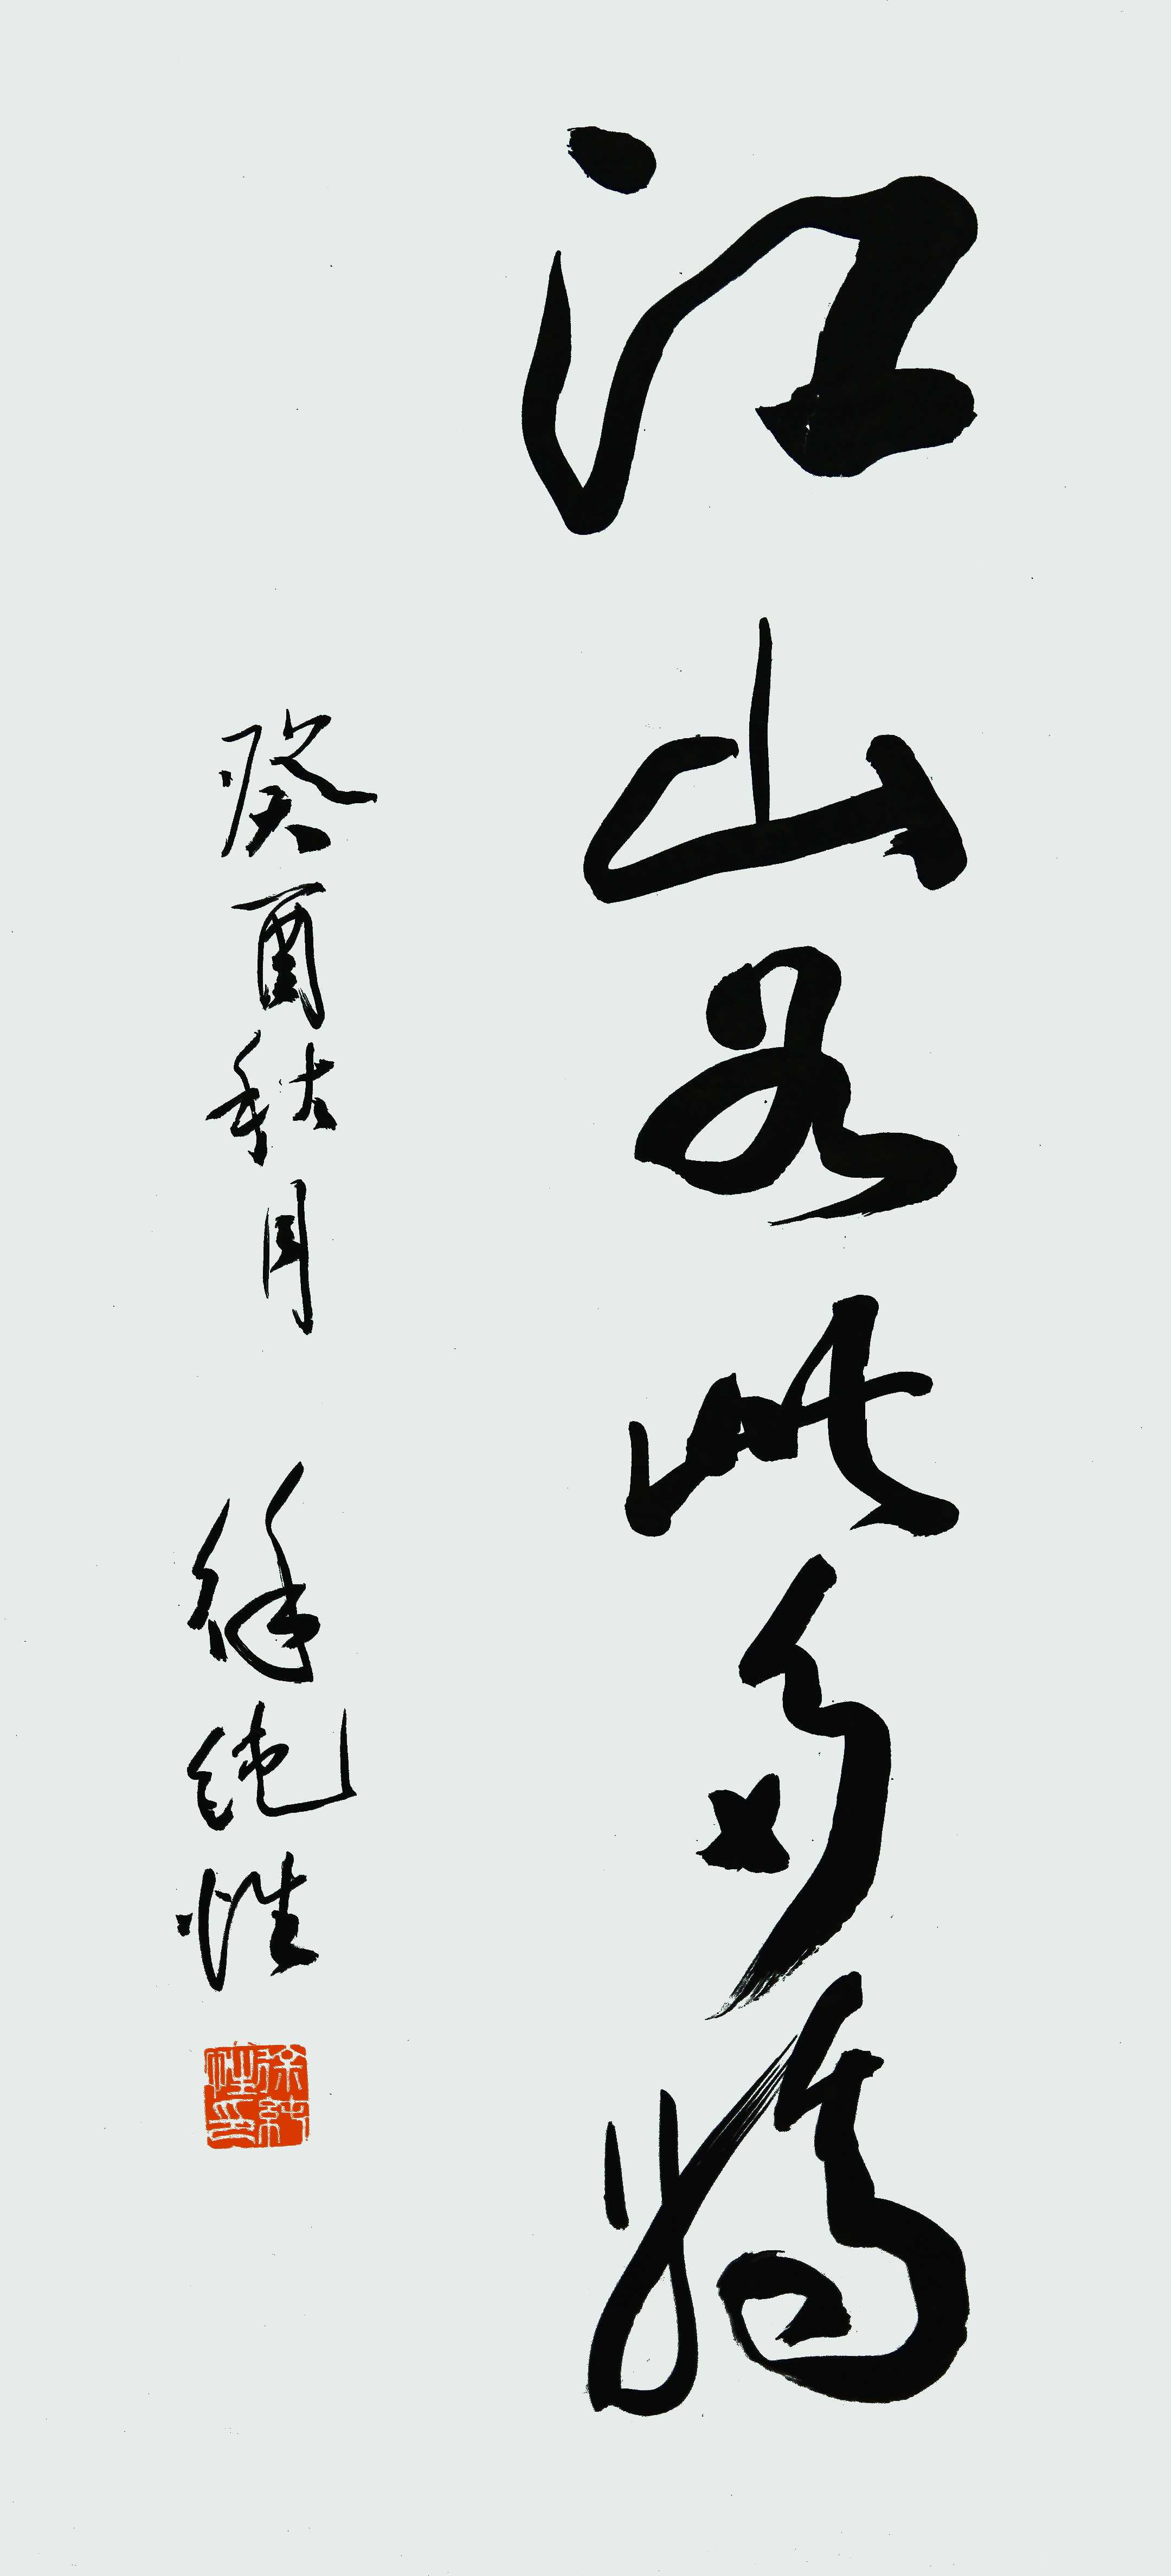 江山如此多嬌
癸酉秋月 徐纯性
徐純性印